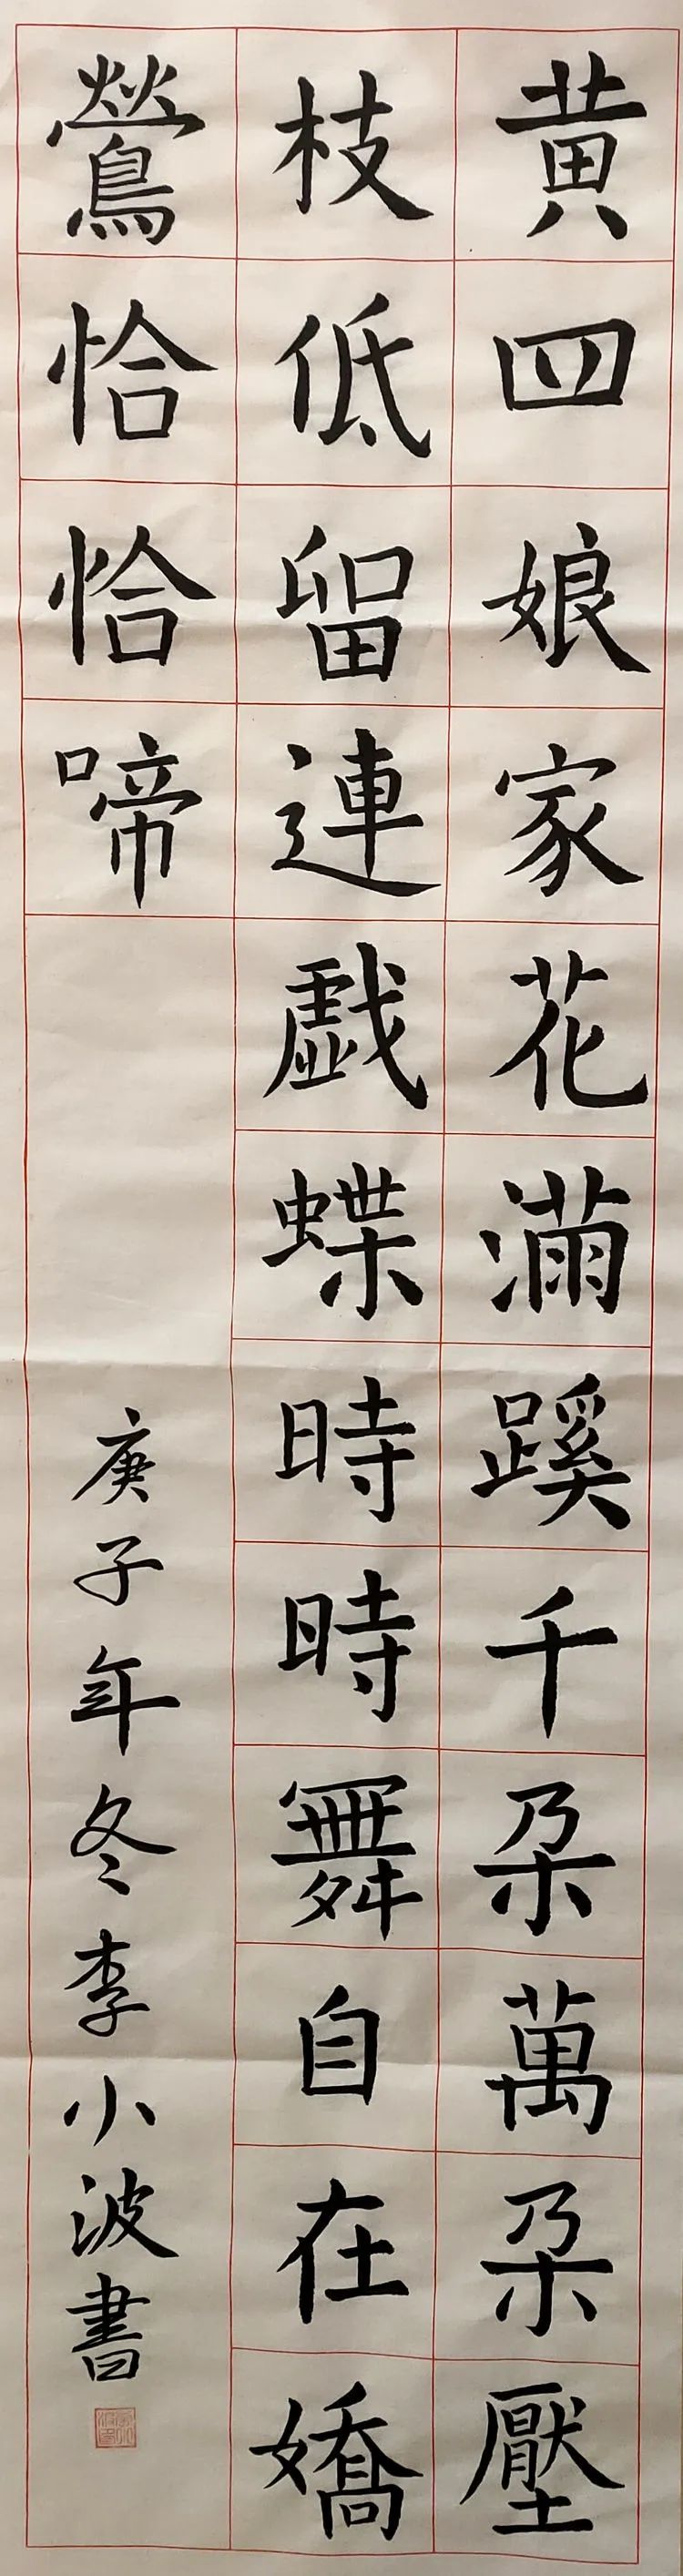 黄四娘家花滿蹊千朵萬朵壓
枝低留連戲蝶時時舞自在嬌
鶯恰恰啼
庚子年冬李小波書